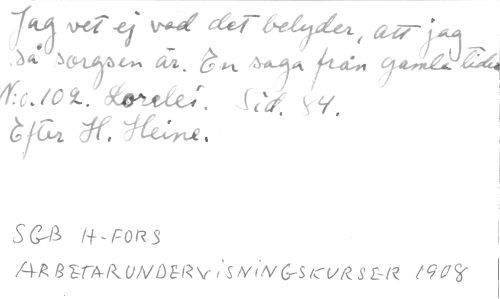 Jag vet ej vad det belyder, att jag
så sorgsen är. En saga från gamla tider
N:o. 102. Lorelei. Sid. 84.
Efter H. Heine.
SGB H-FORS
ARBETARUNDERVISNINGSKURSER 1908